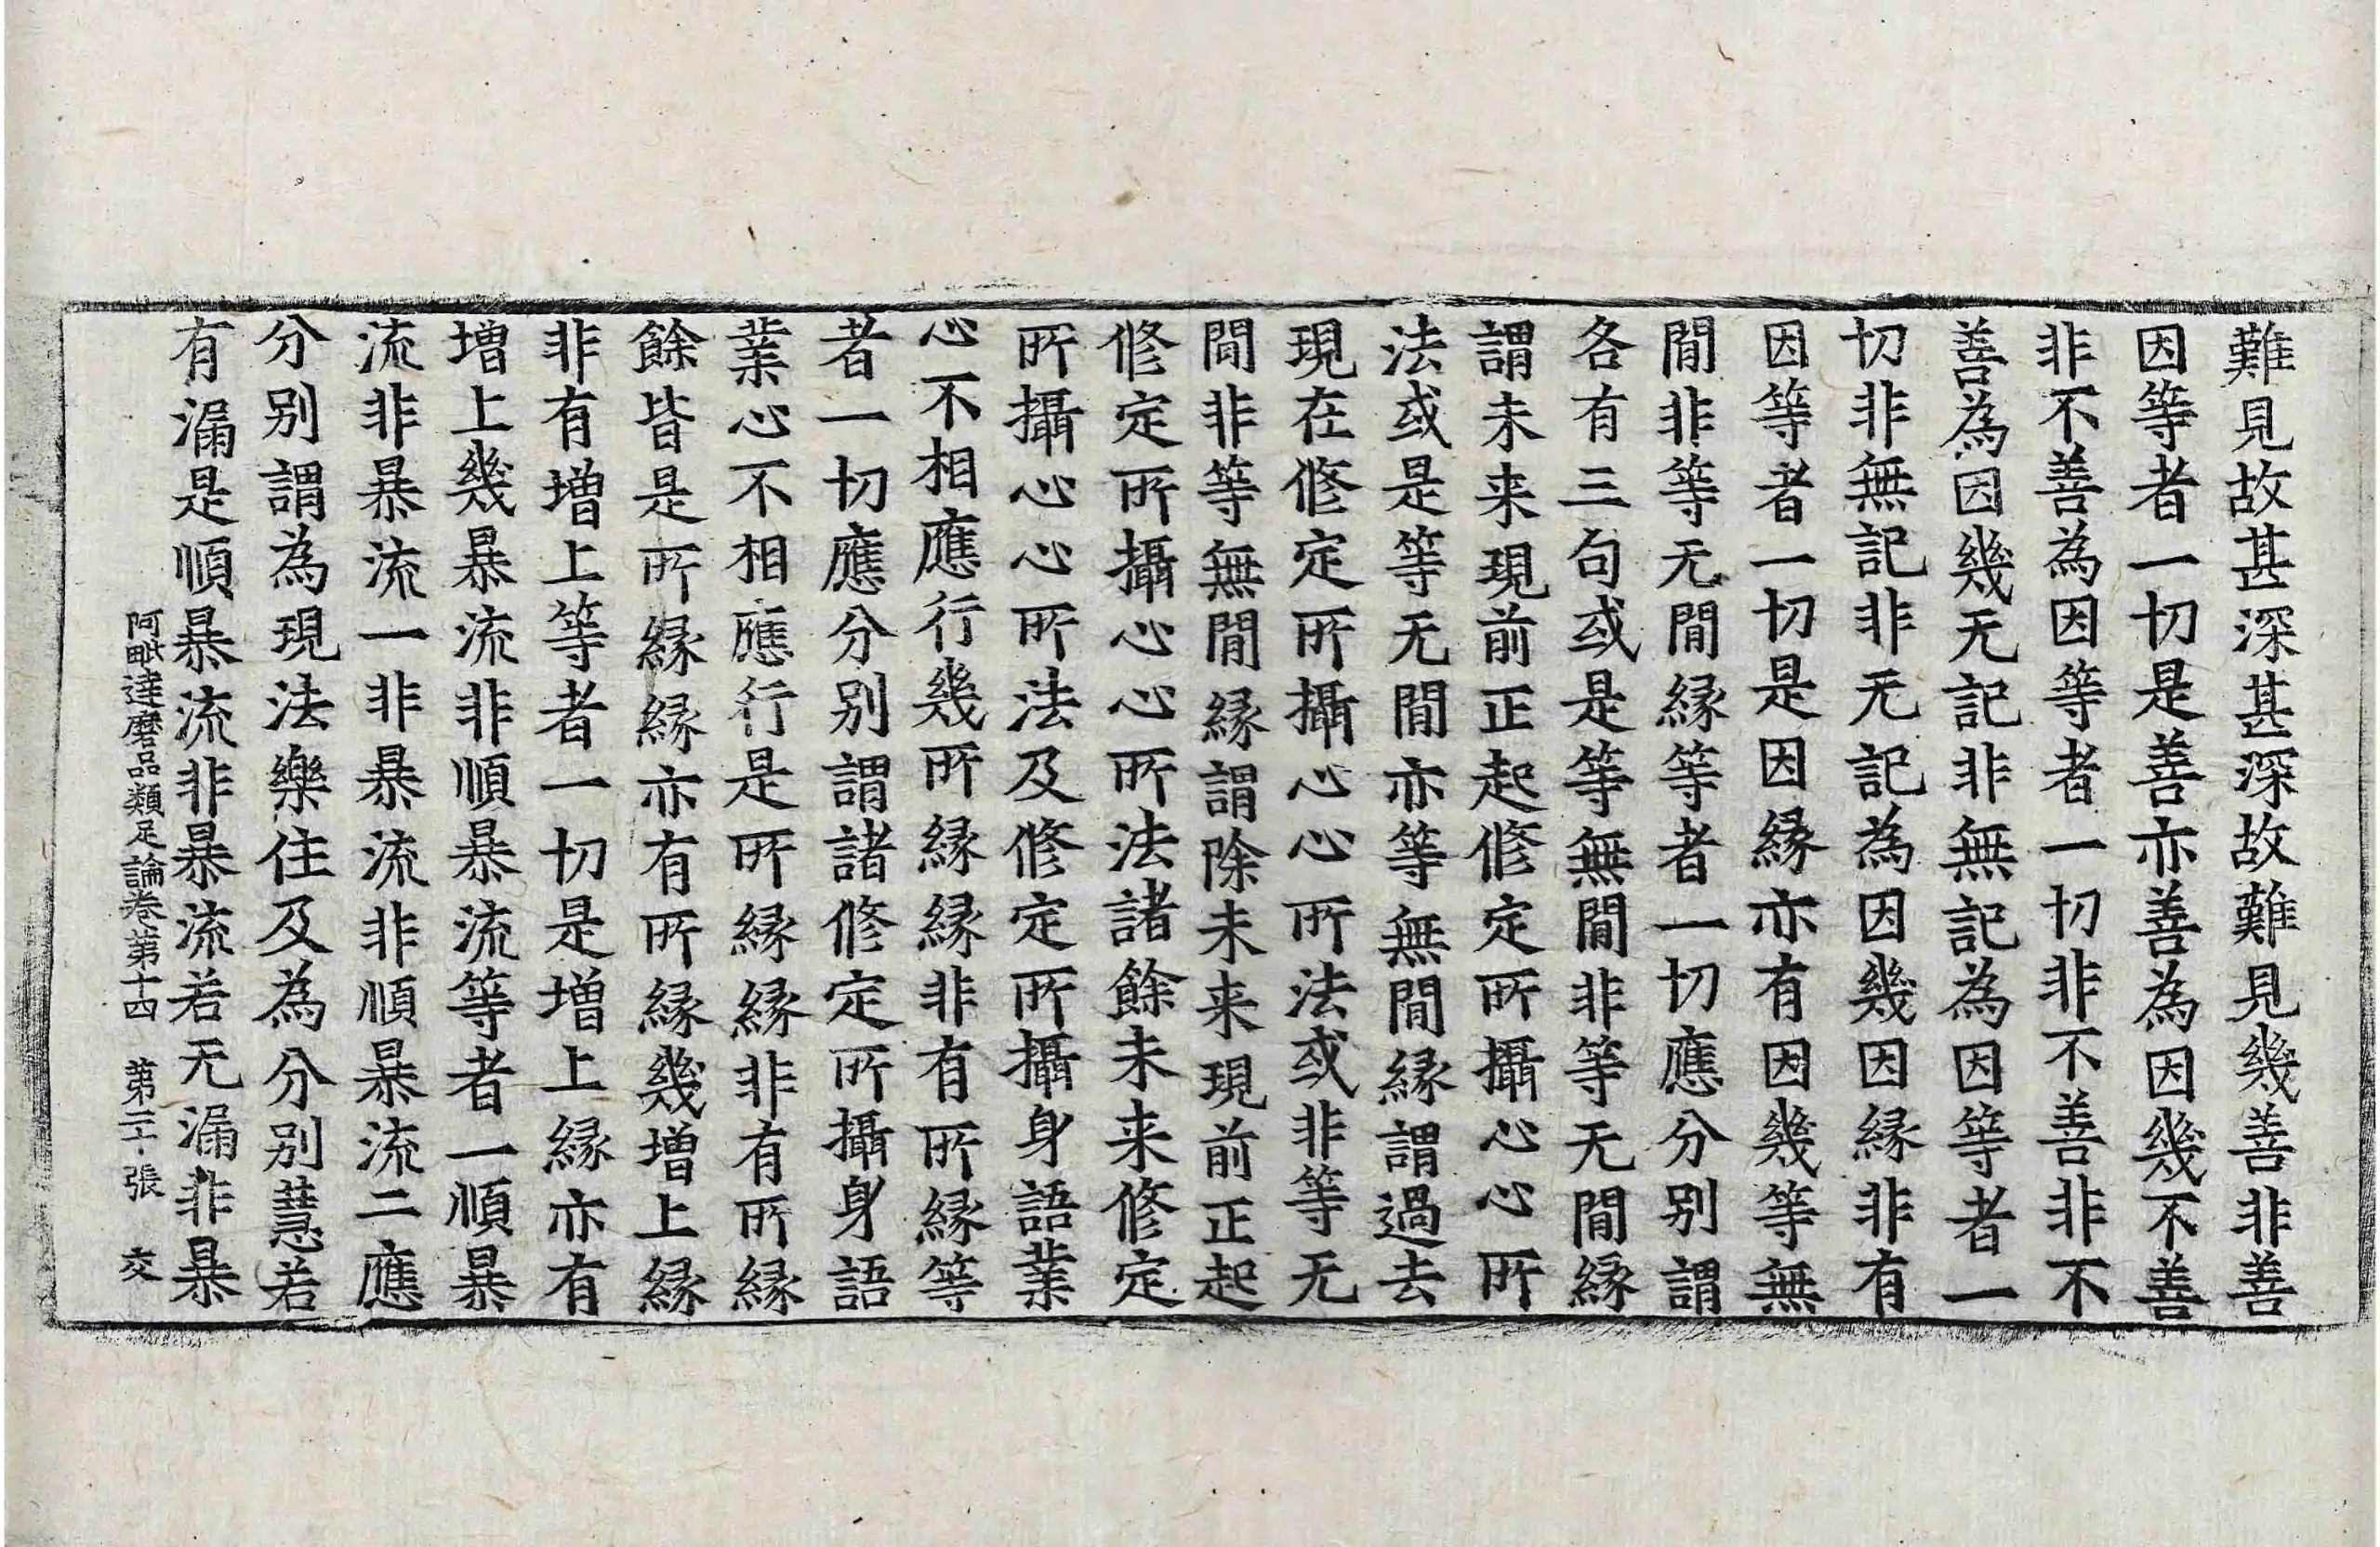 難見故甚深甚深故難見幾善非善
因等者一切是善亦善為因幾不善
非不善為因等者一切非不善非不
善為因幾无記非無記為因等者一
切非無記非无記為因幾因縁非有
因等者一切是因縁亦有因幾等無
間非等无間縁等者一切應分別謂
各有三句或是等無間非等无間縁
謂未来現前正起修定所攝心心所
法或是等无間亦等無間縁謂過去
現在修定所攝心心所法或非等无
間非等無間縁謂除未来現前正起
修定所攝心心所法諸餘未来修定
所攝心心所法及修定所攝身語業
心不相應行幾所縁縁非有所縁等
者一切應分別謂諸修定所攝身語
業心不相應行是所縁縁非有所縁
餘皆是所縁縁亦有所縁幾增上縁
非有增上等者一切是增上縁亦有
增上幾暴流非順暴流等者一順暴
流非暴流一非暴流非順暴流二應
分別謂為現法樂住及為分別慧若
有漏是順暴流非暴流若无漏非暴
阿毗達磨品類足論卷第十四 第二十張 交